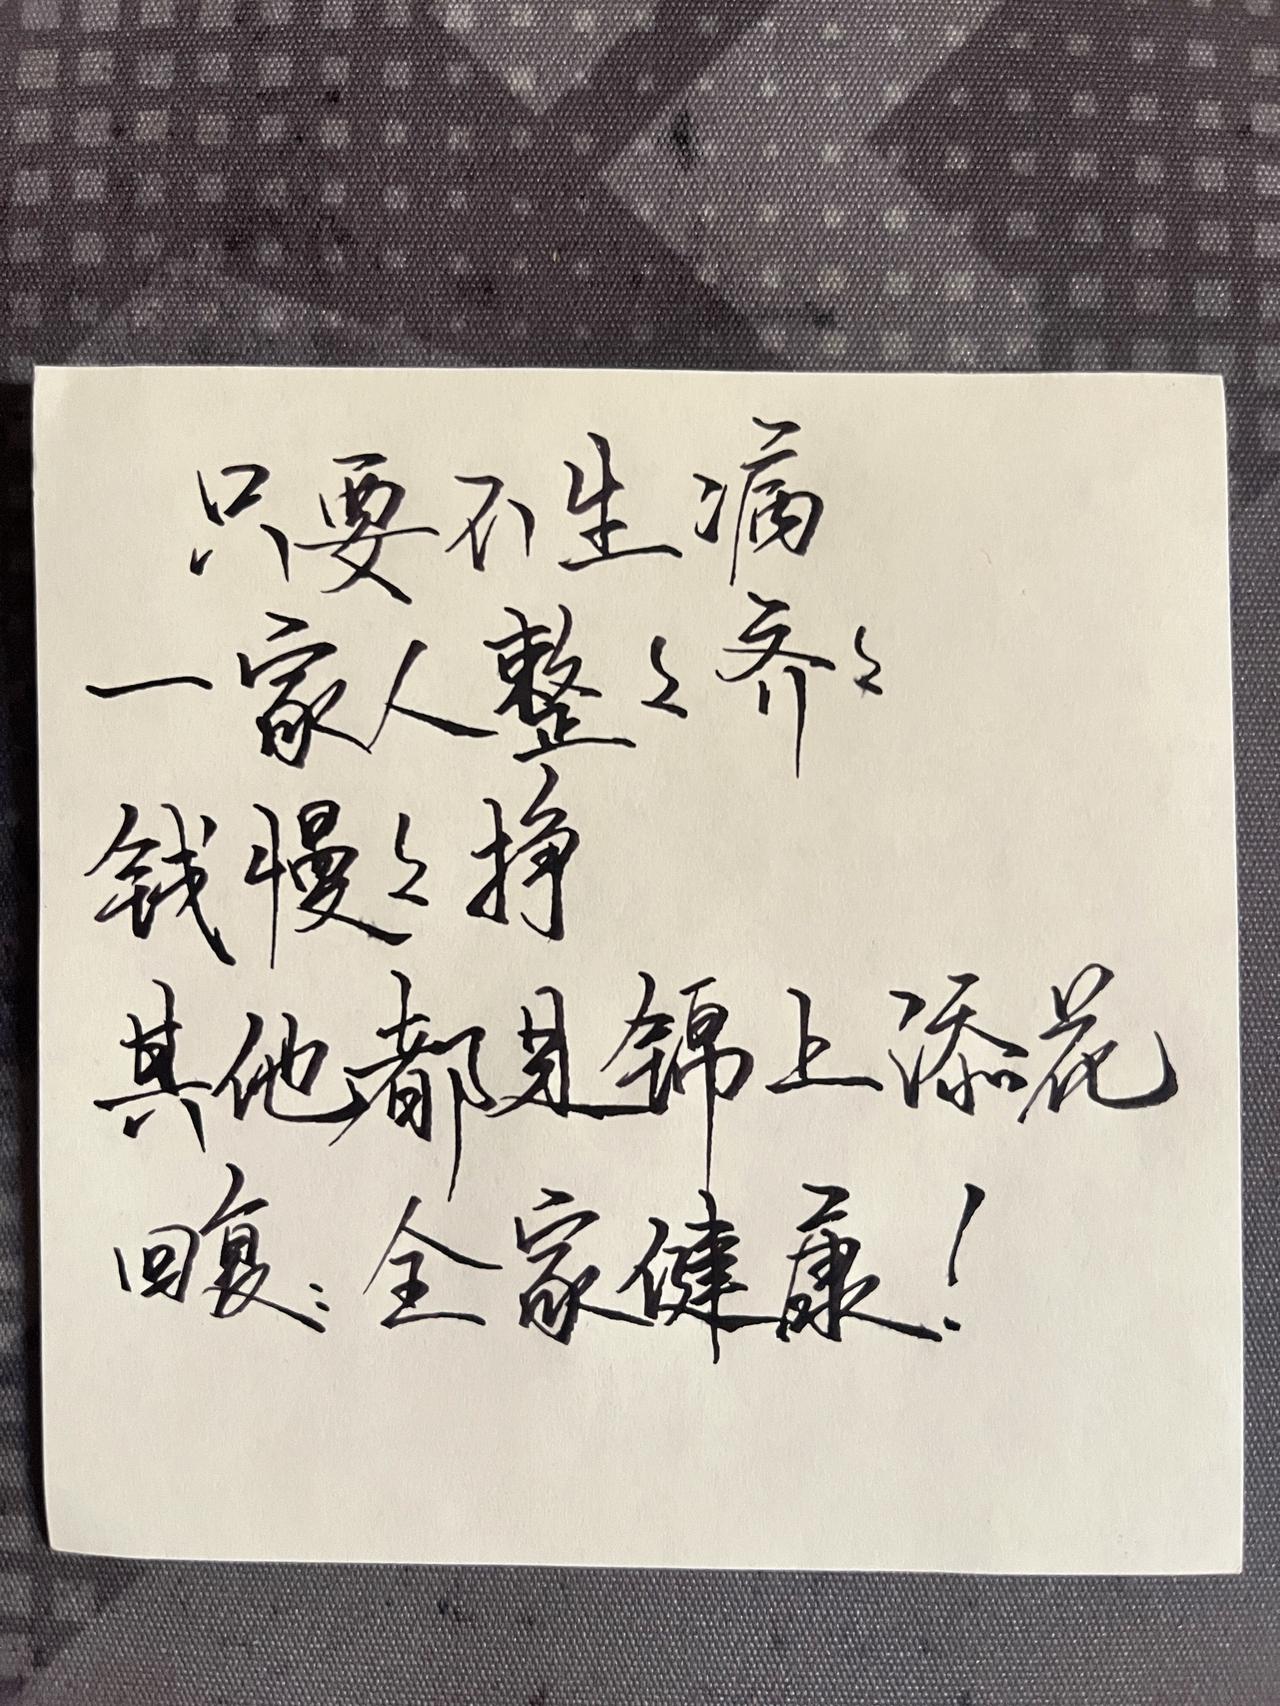 只要不生病
一家人整々齐々
钱慢々挣
其他都是锦上添花
回复：全家健康！